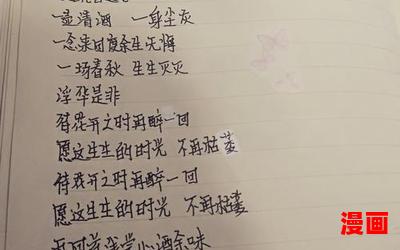 一壶清酒 一身尘灰
一念来回度余生无悔
一场春秋 生生灭灭
浮华是非
待花开之时再醉一回
愿这生生的时光 不再枯萎
待花开之时再醉一回
愿这生生的时光 不再枯萎
酒余味
漫画